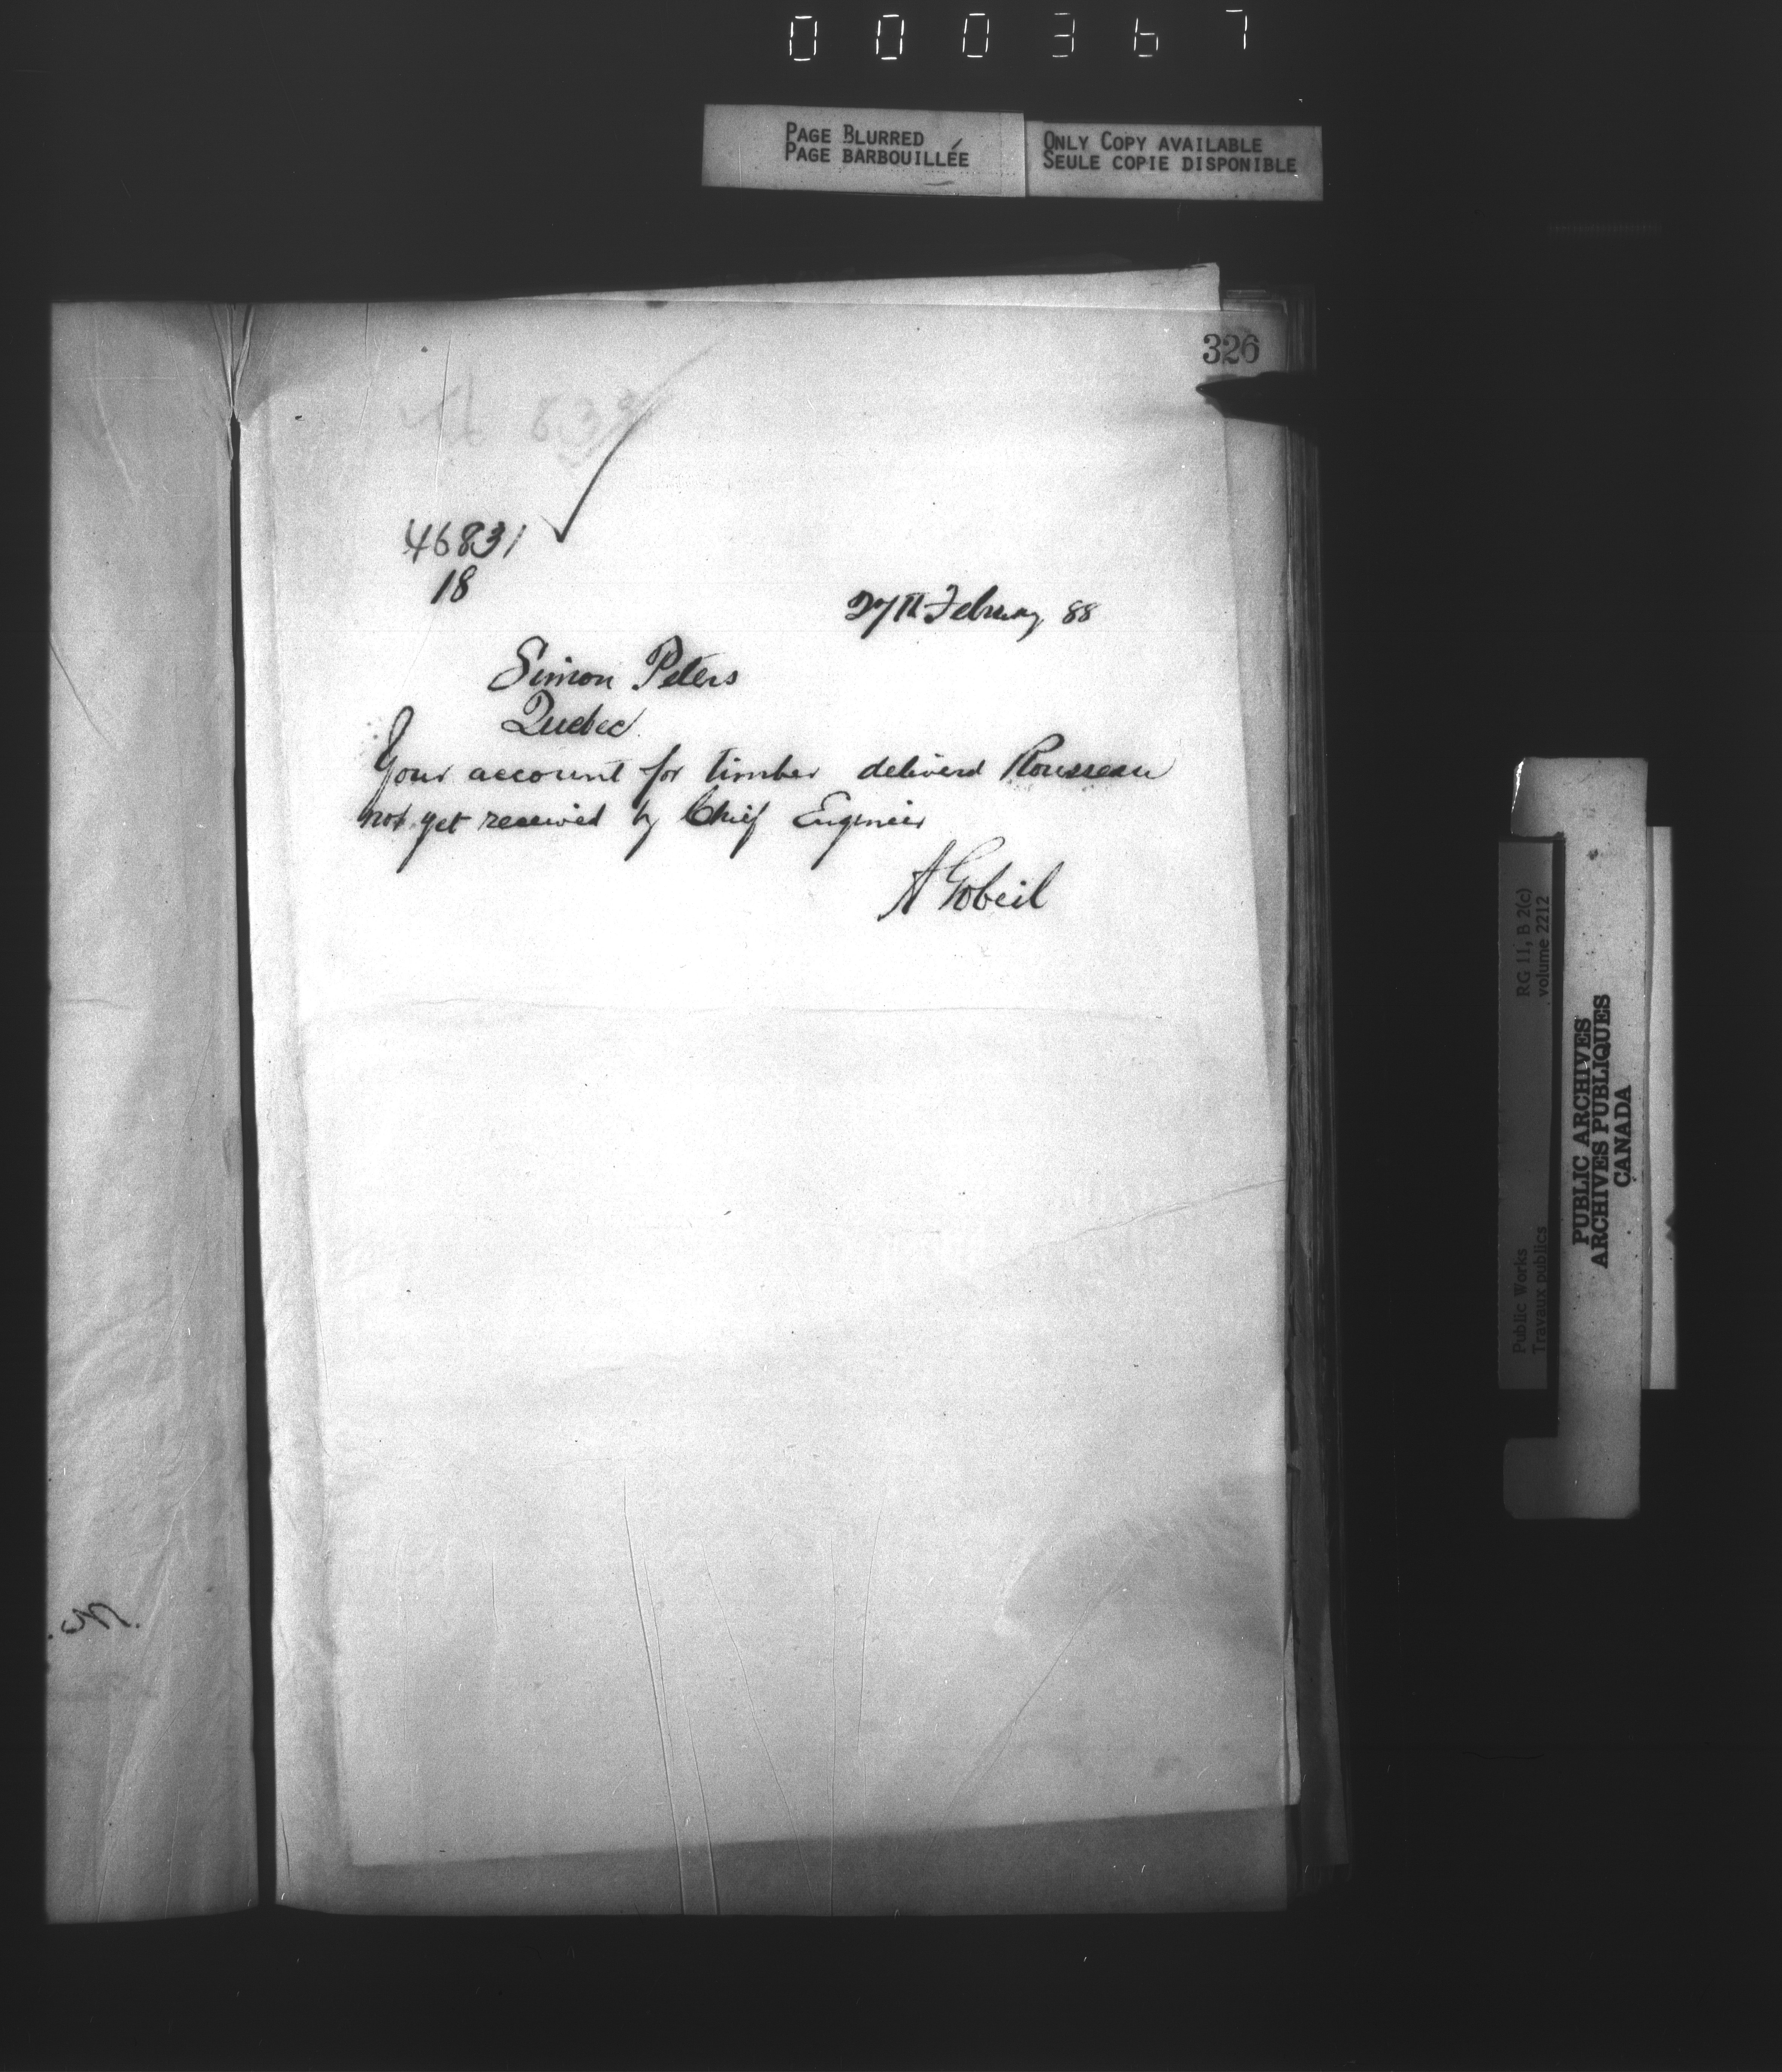 000367
PAGE BLURRED
PAGE BARBOUILLÉE
ONLY COPY AVAILABLE
SEULE COPIE DISPONIBLE
326
46831
18
27th February 88
Simon Peters
Quebec
Your account for timber deliverd Rousseau
not yet received by Chief Engineer
A Gobeil
RG 11, B 2(c)
volume 2212
Public Works
Travaux publics
PUBLIC ARCHIVES
ARCHIVES PUBLIQUES
CANADA